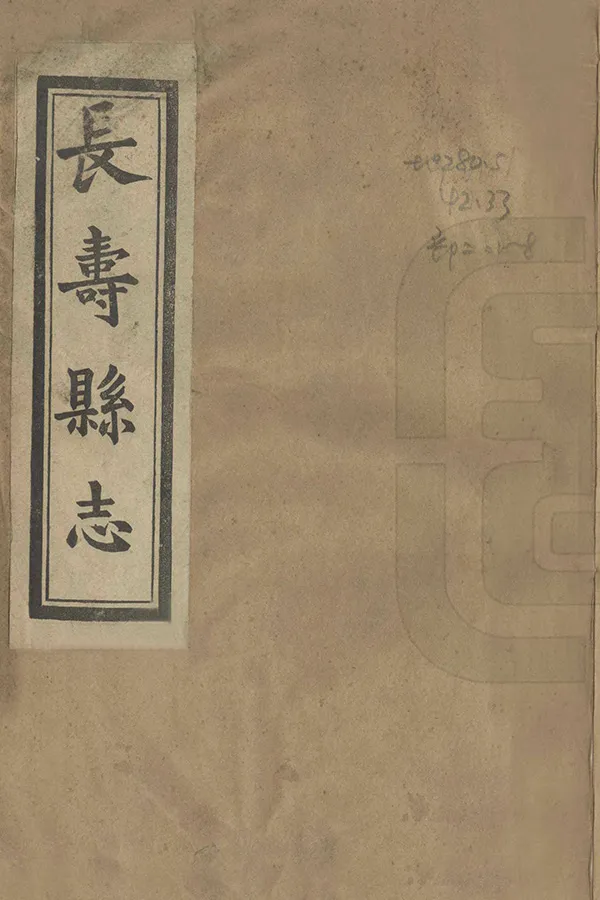 長壽縣志
42.33